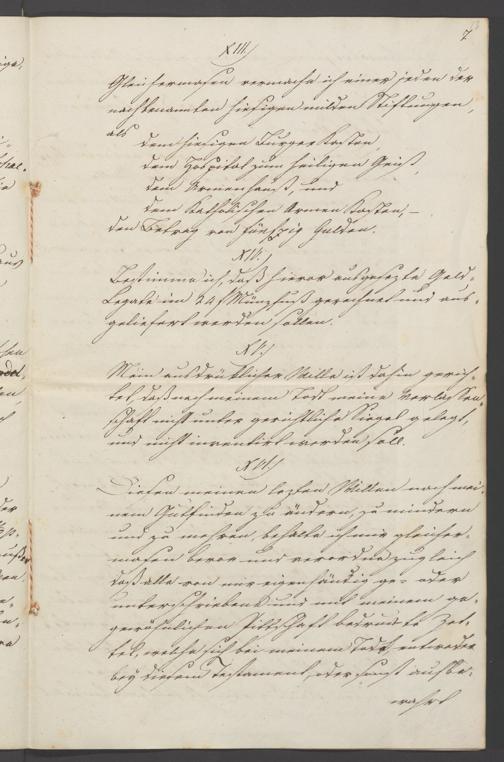 7
XIII.)
Gleichermasen vermache ich einer jeden der
nachbenamten hiesigen milden Stiftungen,
als
dem hiesigen Burger Kasten,
dem Hospital zum heiligen Geist,
dem Armenhauß, und
dem Katholischen Armen Kasten, –
den Betrag von fünfzig Gulden.
XIV.)
Bestimme ich, daß hievor ausgesezte Geld-
Legate im 24 f Münzfuß gerechnet und aus-
geliefert werden sollen.
XV.)
Mein ausdrüklicher Wille ist dahin gerich-
tet, daß nach meinem Tod meine Verlassen-
schaft nicht unter gerichtliche Siegel gelegt,
und nicht inventirt werden soll.
XVI.)
Diesen meinen lezten Willen nach mei-
nem Gutfinden zu ändern, zu mindern
und zu mehren, behalte ich mir gleicher-
masen bevor und verordne zugleich
daß alle von mir eigenhändig ge- oder
unterschriebene und mit meinem ge-
gewöhnlichen Pittschaft bedruckte Zet-
tel, welche sich bei meinem Tode, entweder
bey diesem Testament, oder sonst aufbe-
wahrt